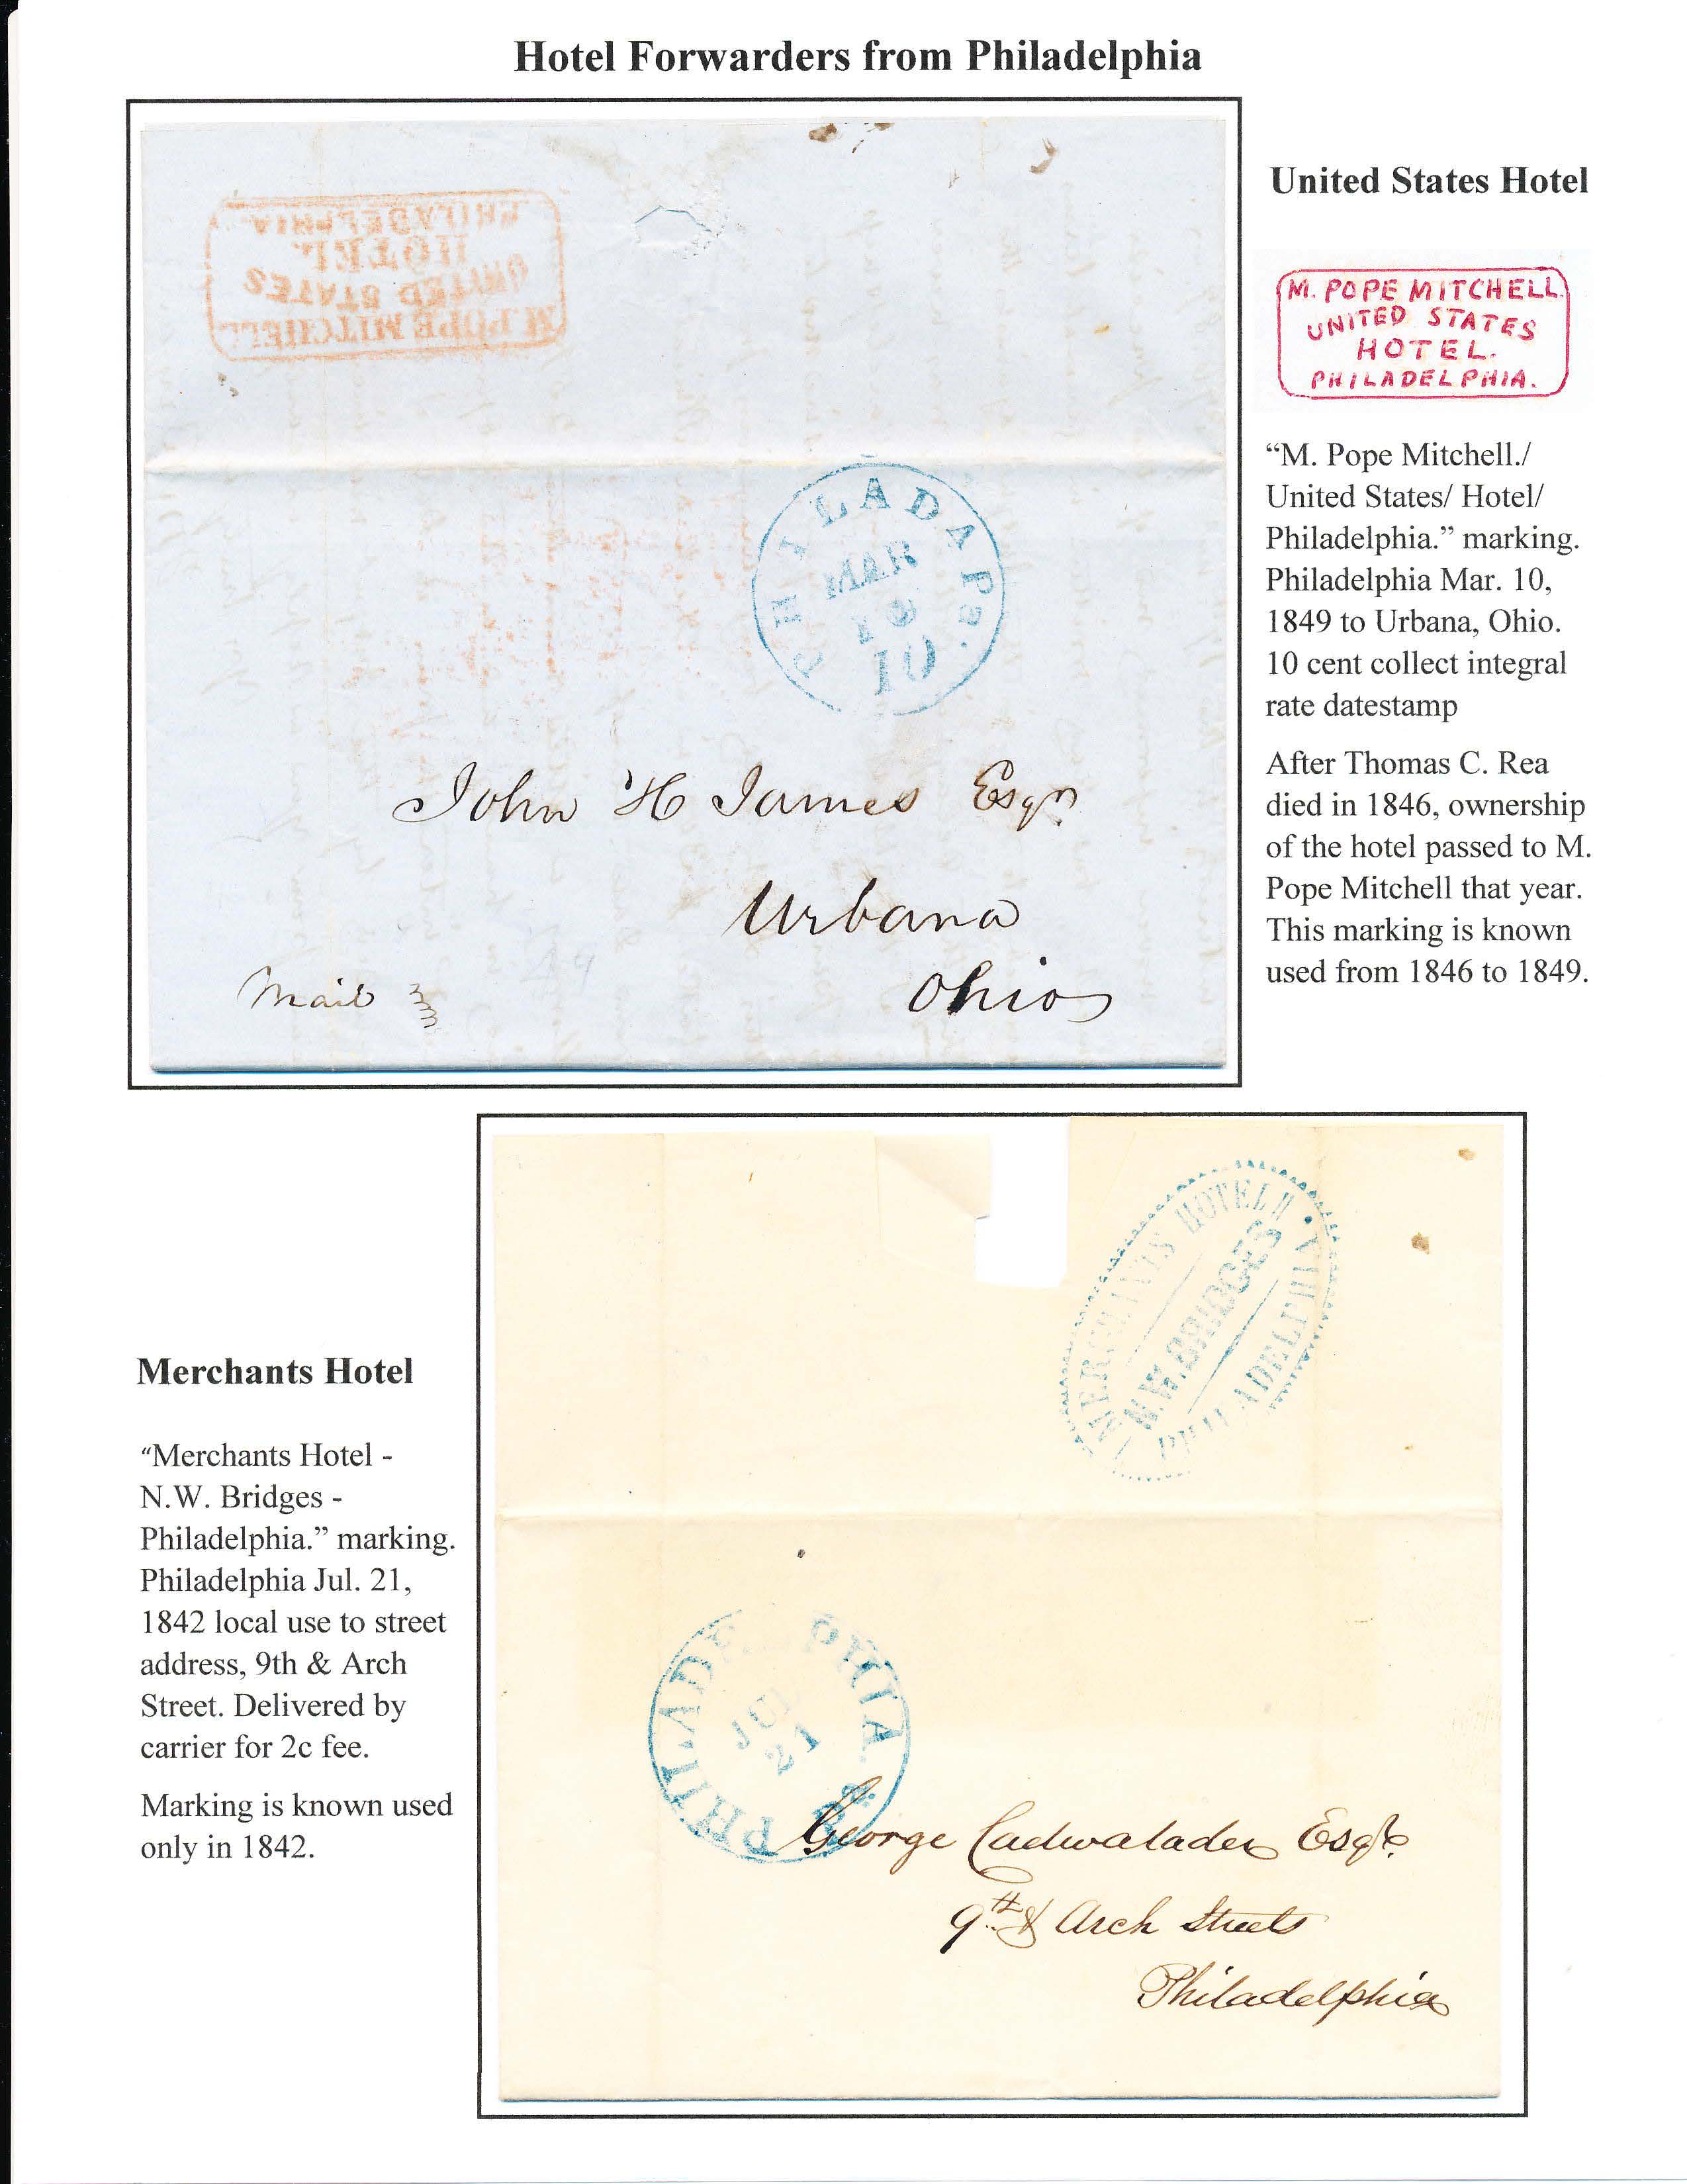 Hotel Forwarders from Philadelphia
M. POPE MITCHELL.
UNITED STATES
HOTEL.
PHILADELPHIA.
PHILADAPa.
MAR
10
10
John H James Esqr
Urbana
Ohio
Mail
United States Hotel
M. POPE MITCHELL.
UNITED STATES
HOTEL.
PHILADELPHIA.
“M. Pope Mitchell./
United States/ Hotel/
Philadelphia.” marking.
Philadelphia Mar. 10,
1849 to Urbana, Ohio.
10 cent collect integral
rate datestamp
After Thomas C. Rea
died in 1846, ownership
of the hotel passed to M.
Pope Mitchell that year.
This marking is known
used from 1846 to 1849.
Merchants Hotel
“Merchants Hotel -
N.W. Bridges -
Philadelphia.” marking.
Philadelphia Jul. 21,
1842 local use to street
address, 9th & Arch
Street. Delivered by
carrier for 2c fee.
Marking is known used
only in 1842.
MERCHANTS HOTEL
N.W. BRIDGES
PHILADELPHIA
PHILADELPHIA Pa
JUL
21
George Cadwalader Esqr.
9th & Arch Streets
Philadelphia